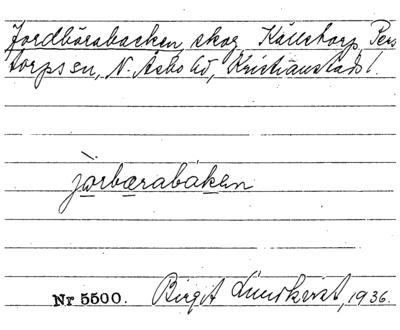 Jordbärabacken, skog, Källstorp, Pers
torps sn, N. Åsbo hd, Kristianstads l.
jòrbærabákən
Nr 5500. Birgit Lundkvist, 1936.